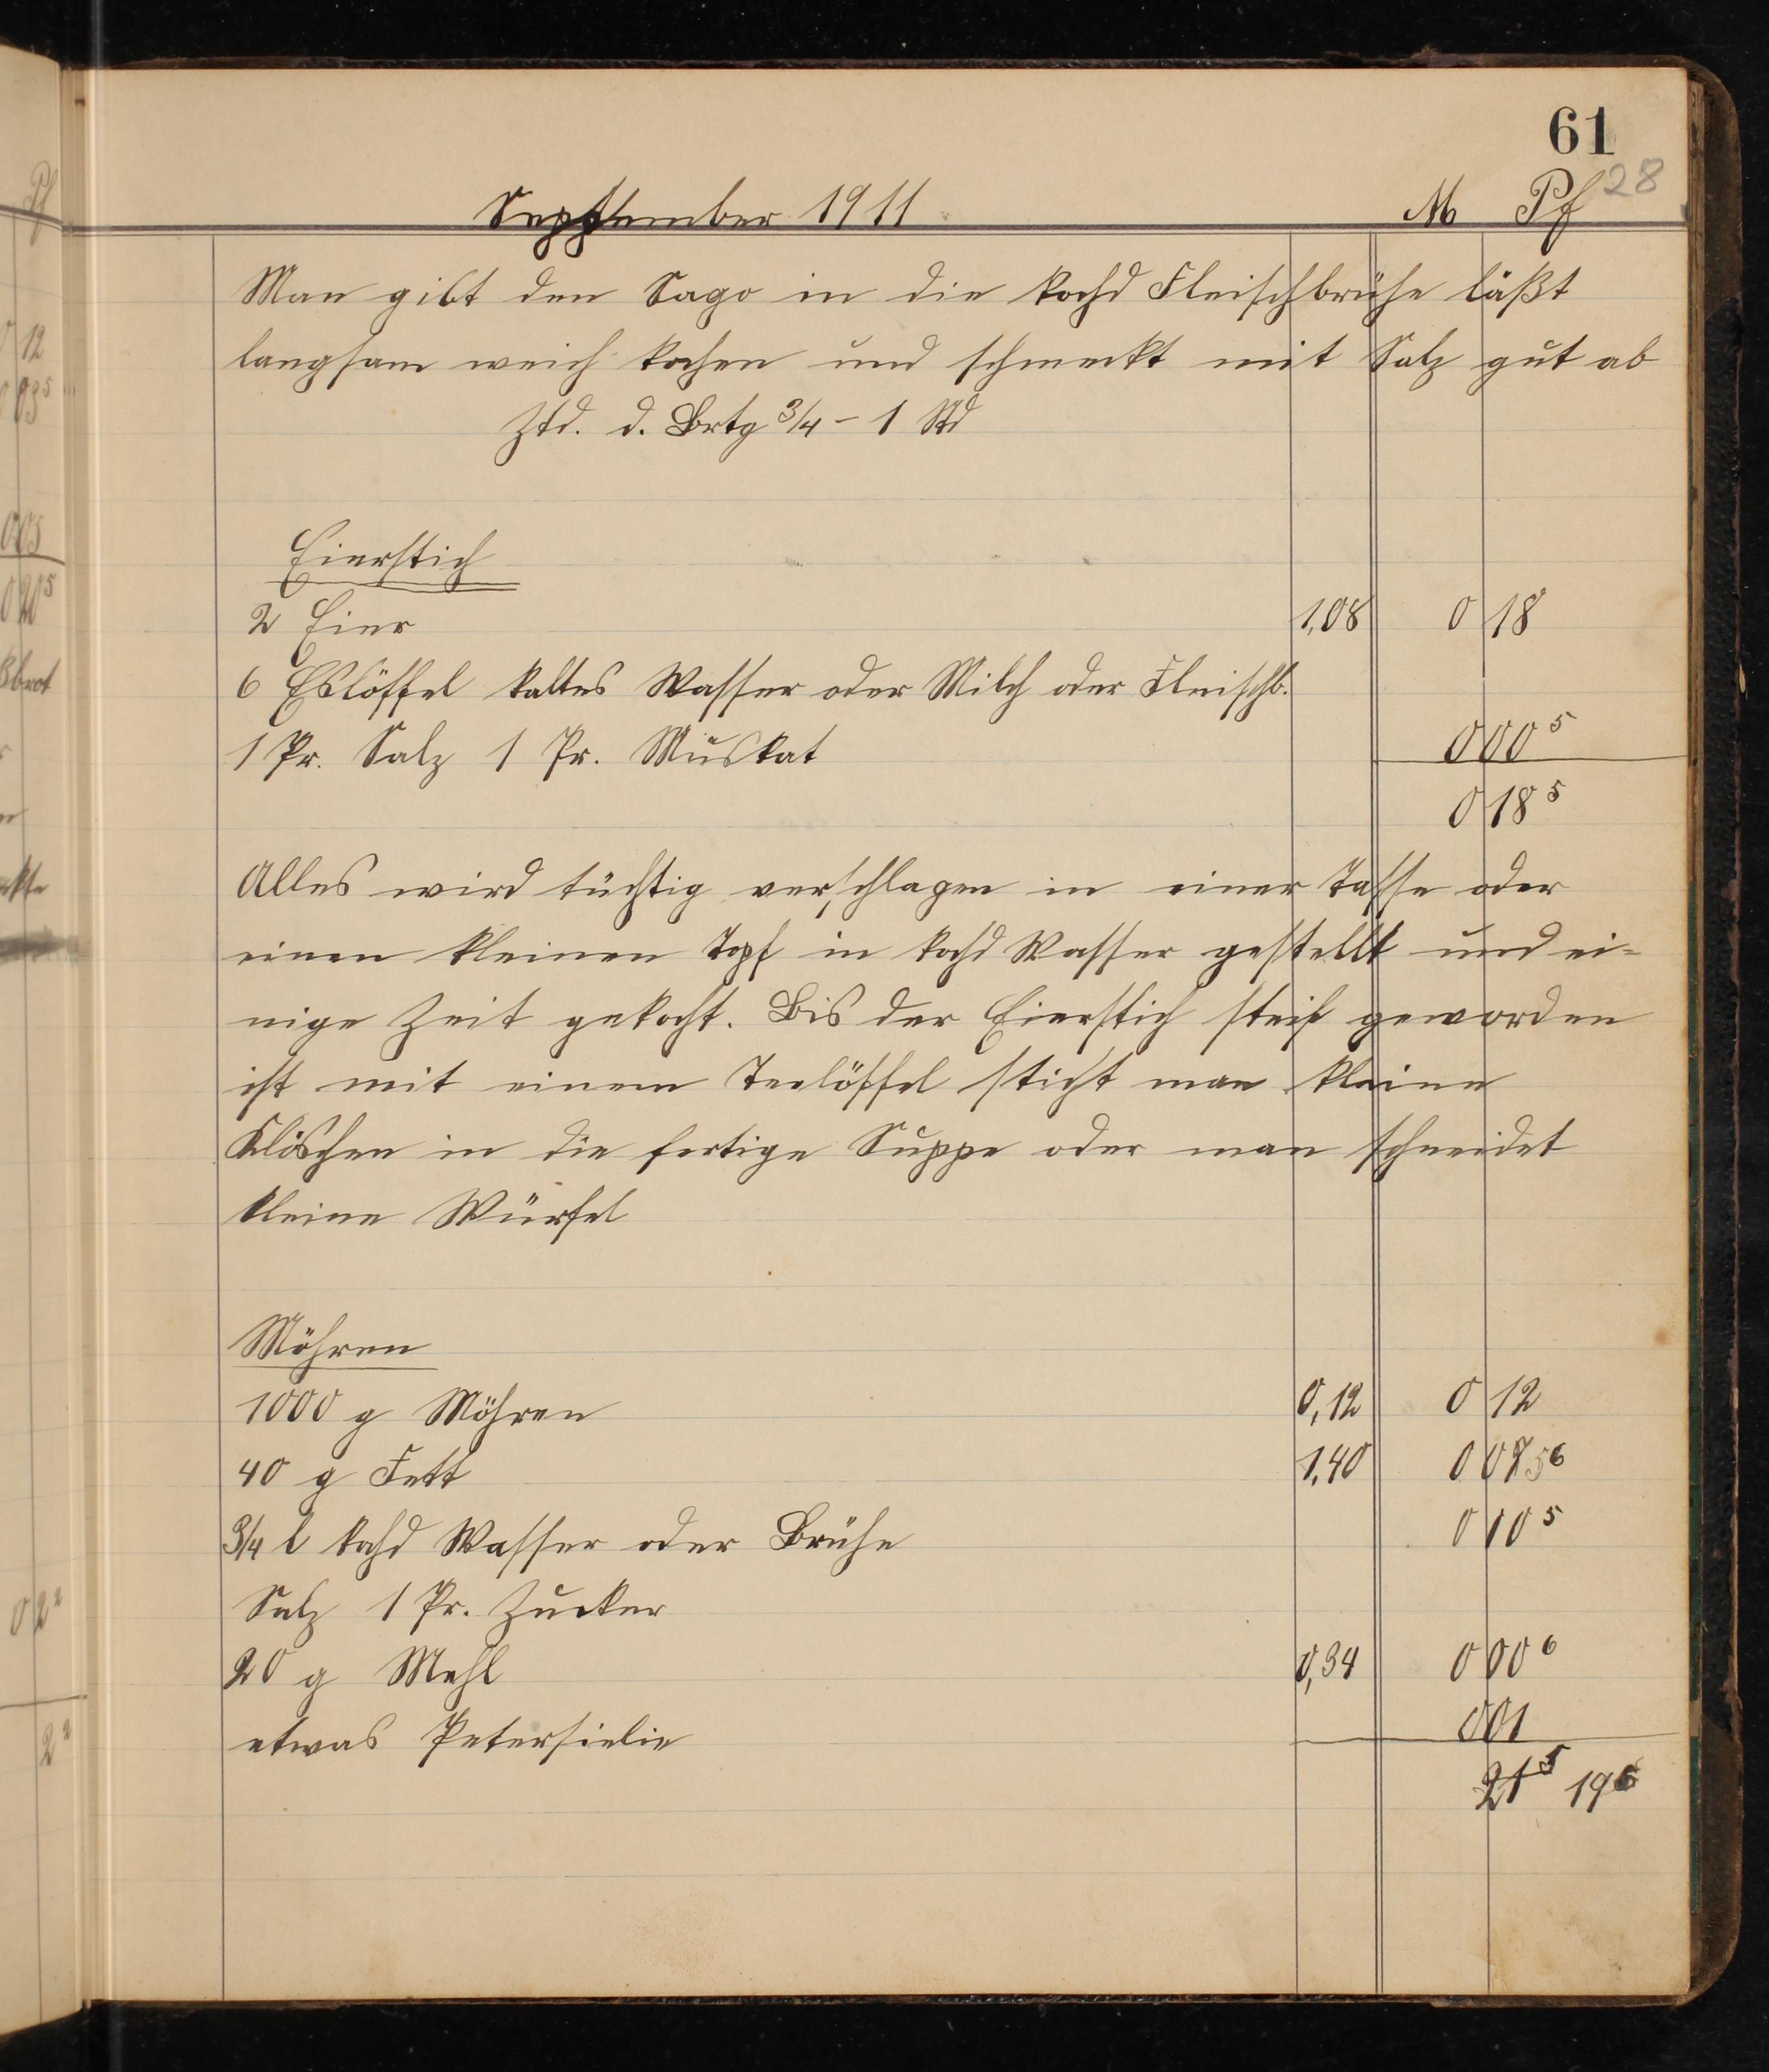 61
28
September 1911 M Pf
Man gibt den Sago in die kochd Fleischbrühe läßt
langsam weich kochen und schmeckt mit Salz gut ab
Ztd. d. Brtg 3/4 - 1 Std
Eierstich
2 Eier 1,08 0 18
6 Eslöffel kaltes Wasser oder Milch oder Fleischb.
1 Pr. Salz 1 Pr. Muskat 0 00 5
0 18 5
Alles wird tüchtig verschlagen in einer Tasse oder
einen kleinen Topf in kochd Wasser gestellt und ei-
nige Zeit gekocht. Bis der Eierstich steif geworden
ist mit einem Teelöffel sticht man kleine
Klöschen in die fertige Suppe oder man schneidet
kleine Würfel
Möhren
1000 g Möhren 0,12 0 12
40 g Fett 1,40 0 0 56
3/4 l kochd Wasser oder Brühe 0 10 5
Salz 1 Pr. Zucker
20 g Mehl 0,34 0 00 6
etwas Petersielie 0 01
21 5 19